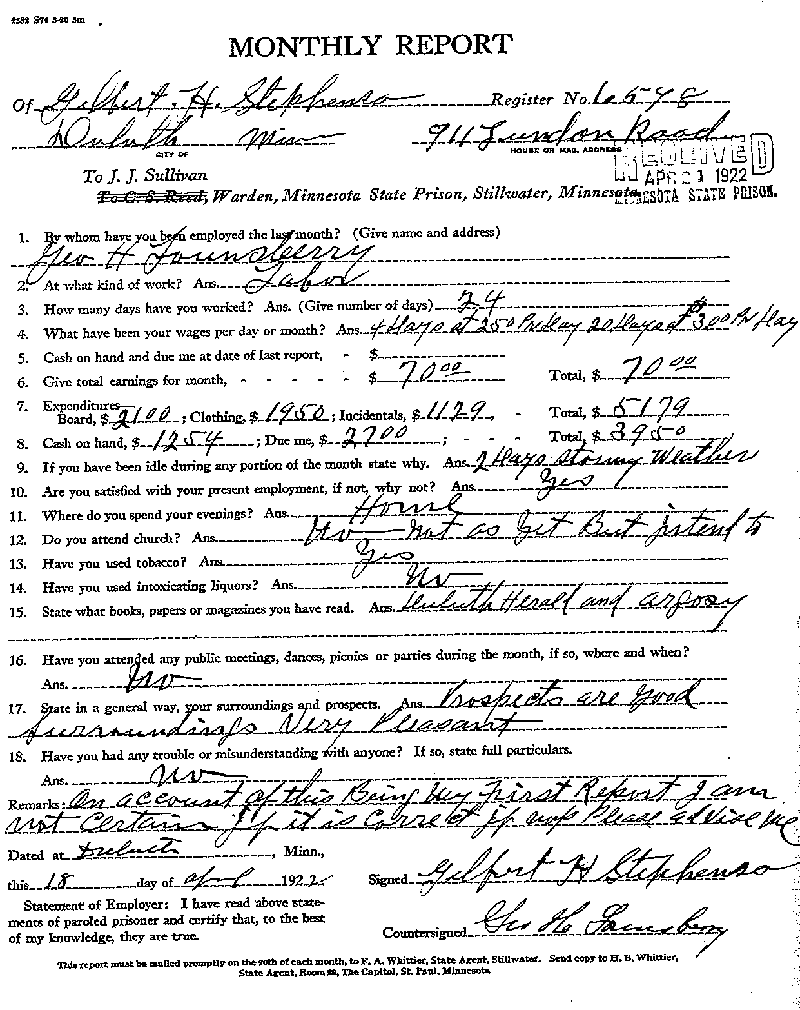 MONTHLY REPORT
Of Gilbert. H. Stephenso Register No. 6578
Duluth Minn 911 London Road
CITY OF HOUSE OR MAIL ADDRESS
RECEIVED
APR 21 1922
MINNESOTA STATE PRISON.
To J. J. Sullivan
To C. S. Reed, Warden, Minnesota State Prison, Stillwater, Minnesota
1. By whom have you been employed the last month? (Give name and address)
Geo H Lounsberry
2. At what kind of work? Ans. Labor
3. How many days have you worked? Ans. (Give number of days) 24
4. What have been your wages per day or month? Ans. 4 Days at 250 Pr Day 20 Days at $300 Pr Day
5. Cash on hand and due me at date of last report, - $
6. Give total earnings for month, - - - - - $ 70 00 Total, $ 70 00
7. Expenditures
Board, $ 2100 ; Clothing, $ 1950 ; Incidentals, $ 1129 - Total, $ 5179
8. Cash on hand, $ 1254 ; Due me, $ 2700 ; - - - Total, $ 3950
9. If you have been idle during any portion of the month state why. Ans. 2 Days stormy Weather
10. Are you satisfied with your present employment, if not, why not? Ans. Yes
11. Where do you spend your evenings? Ans. Home
12. Do you attend church? Ans. No Not as Yet But intend to
13. Have you used tobacco? Ans. Yes
14. Have you used intoxicating liquors? Ans. No
15. State what books, papers or magazines you have read. Ans. Duluth Herald and argosy
16. Have you attended any public meetings, dances, picnics or parties during the month, if so, where and when?
Ans. No
17. State in a general way, your surroundings and prospects. Ans. Prospects are Good
Surroundings Very Pleasant
18. Have you had any trouble or misunderstanding with anyone? If so, state full particulars.
Ans. No
Remarks: On account of this Being My First Report I am
not Certain if it is Correct if not Please advise me
Dated at Duluth, Minn.,
this 18 day of April 1922 Signed Gilbert H Stephenso
Statement of Employer: I have read above state-
ments of paroled prisoner and certify that, to the best
of my knowledge, they are true. Countersigned Geo H. Lounsberry
This report must be mailed promptly on the 20th of each month, to F. A. Whittier, State Agent, Stillwater. Send copy to H. B. Whittier,
State Agent, Room 28, The Capitol, St. Paul, Minnesota